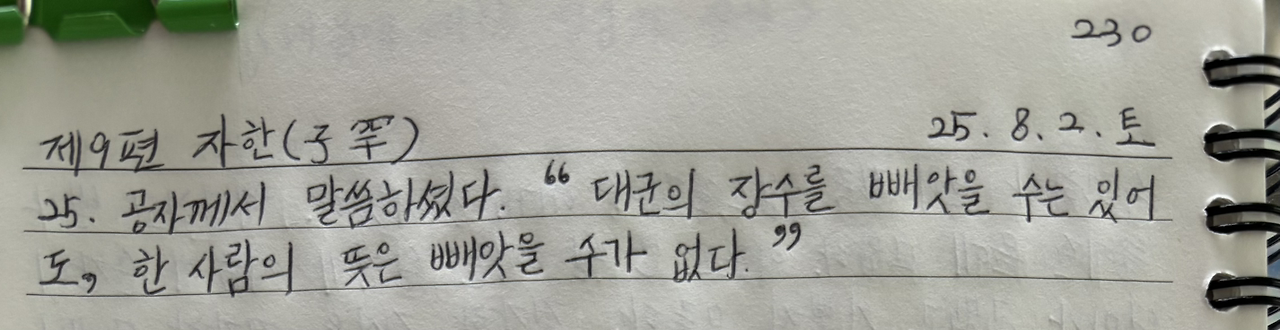 230
제9편 자한(子罕) 25. 8. 2. 토
25. 공자께서 말씀하셨다. “대군의 장수를 빼앗을 수는 있어
도, 한 사람의 뜻은 빼앗을 수가 없다.”